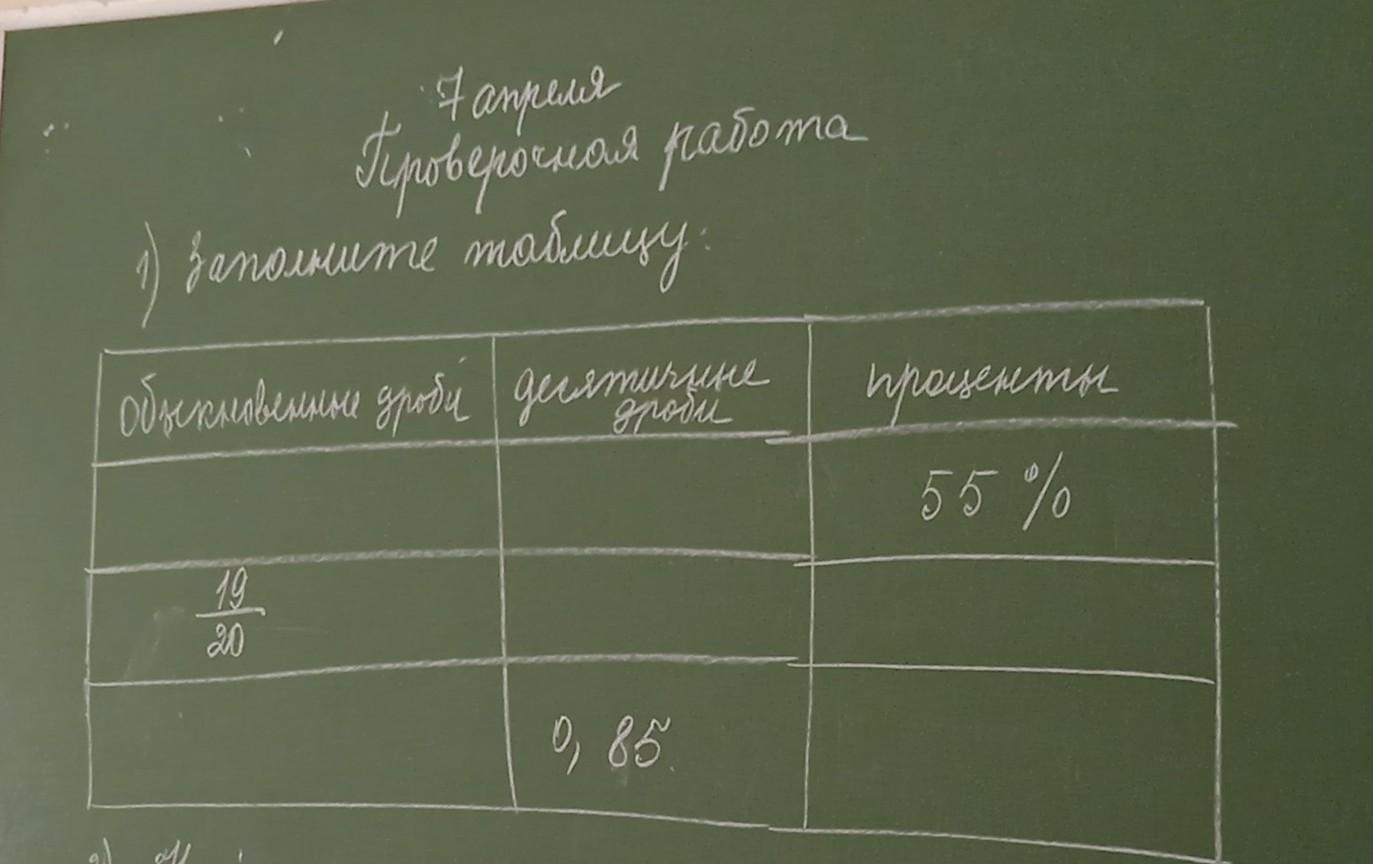 7 апреля
Проверочная работа
1) Заполните таблицу:
Обыкновенные дроби десятичные проценты
дроби
55 %
19
20
0,85